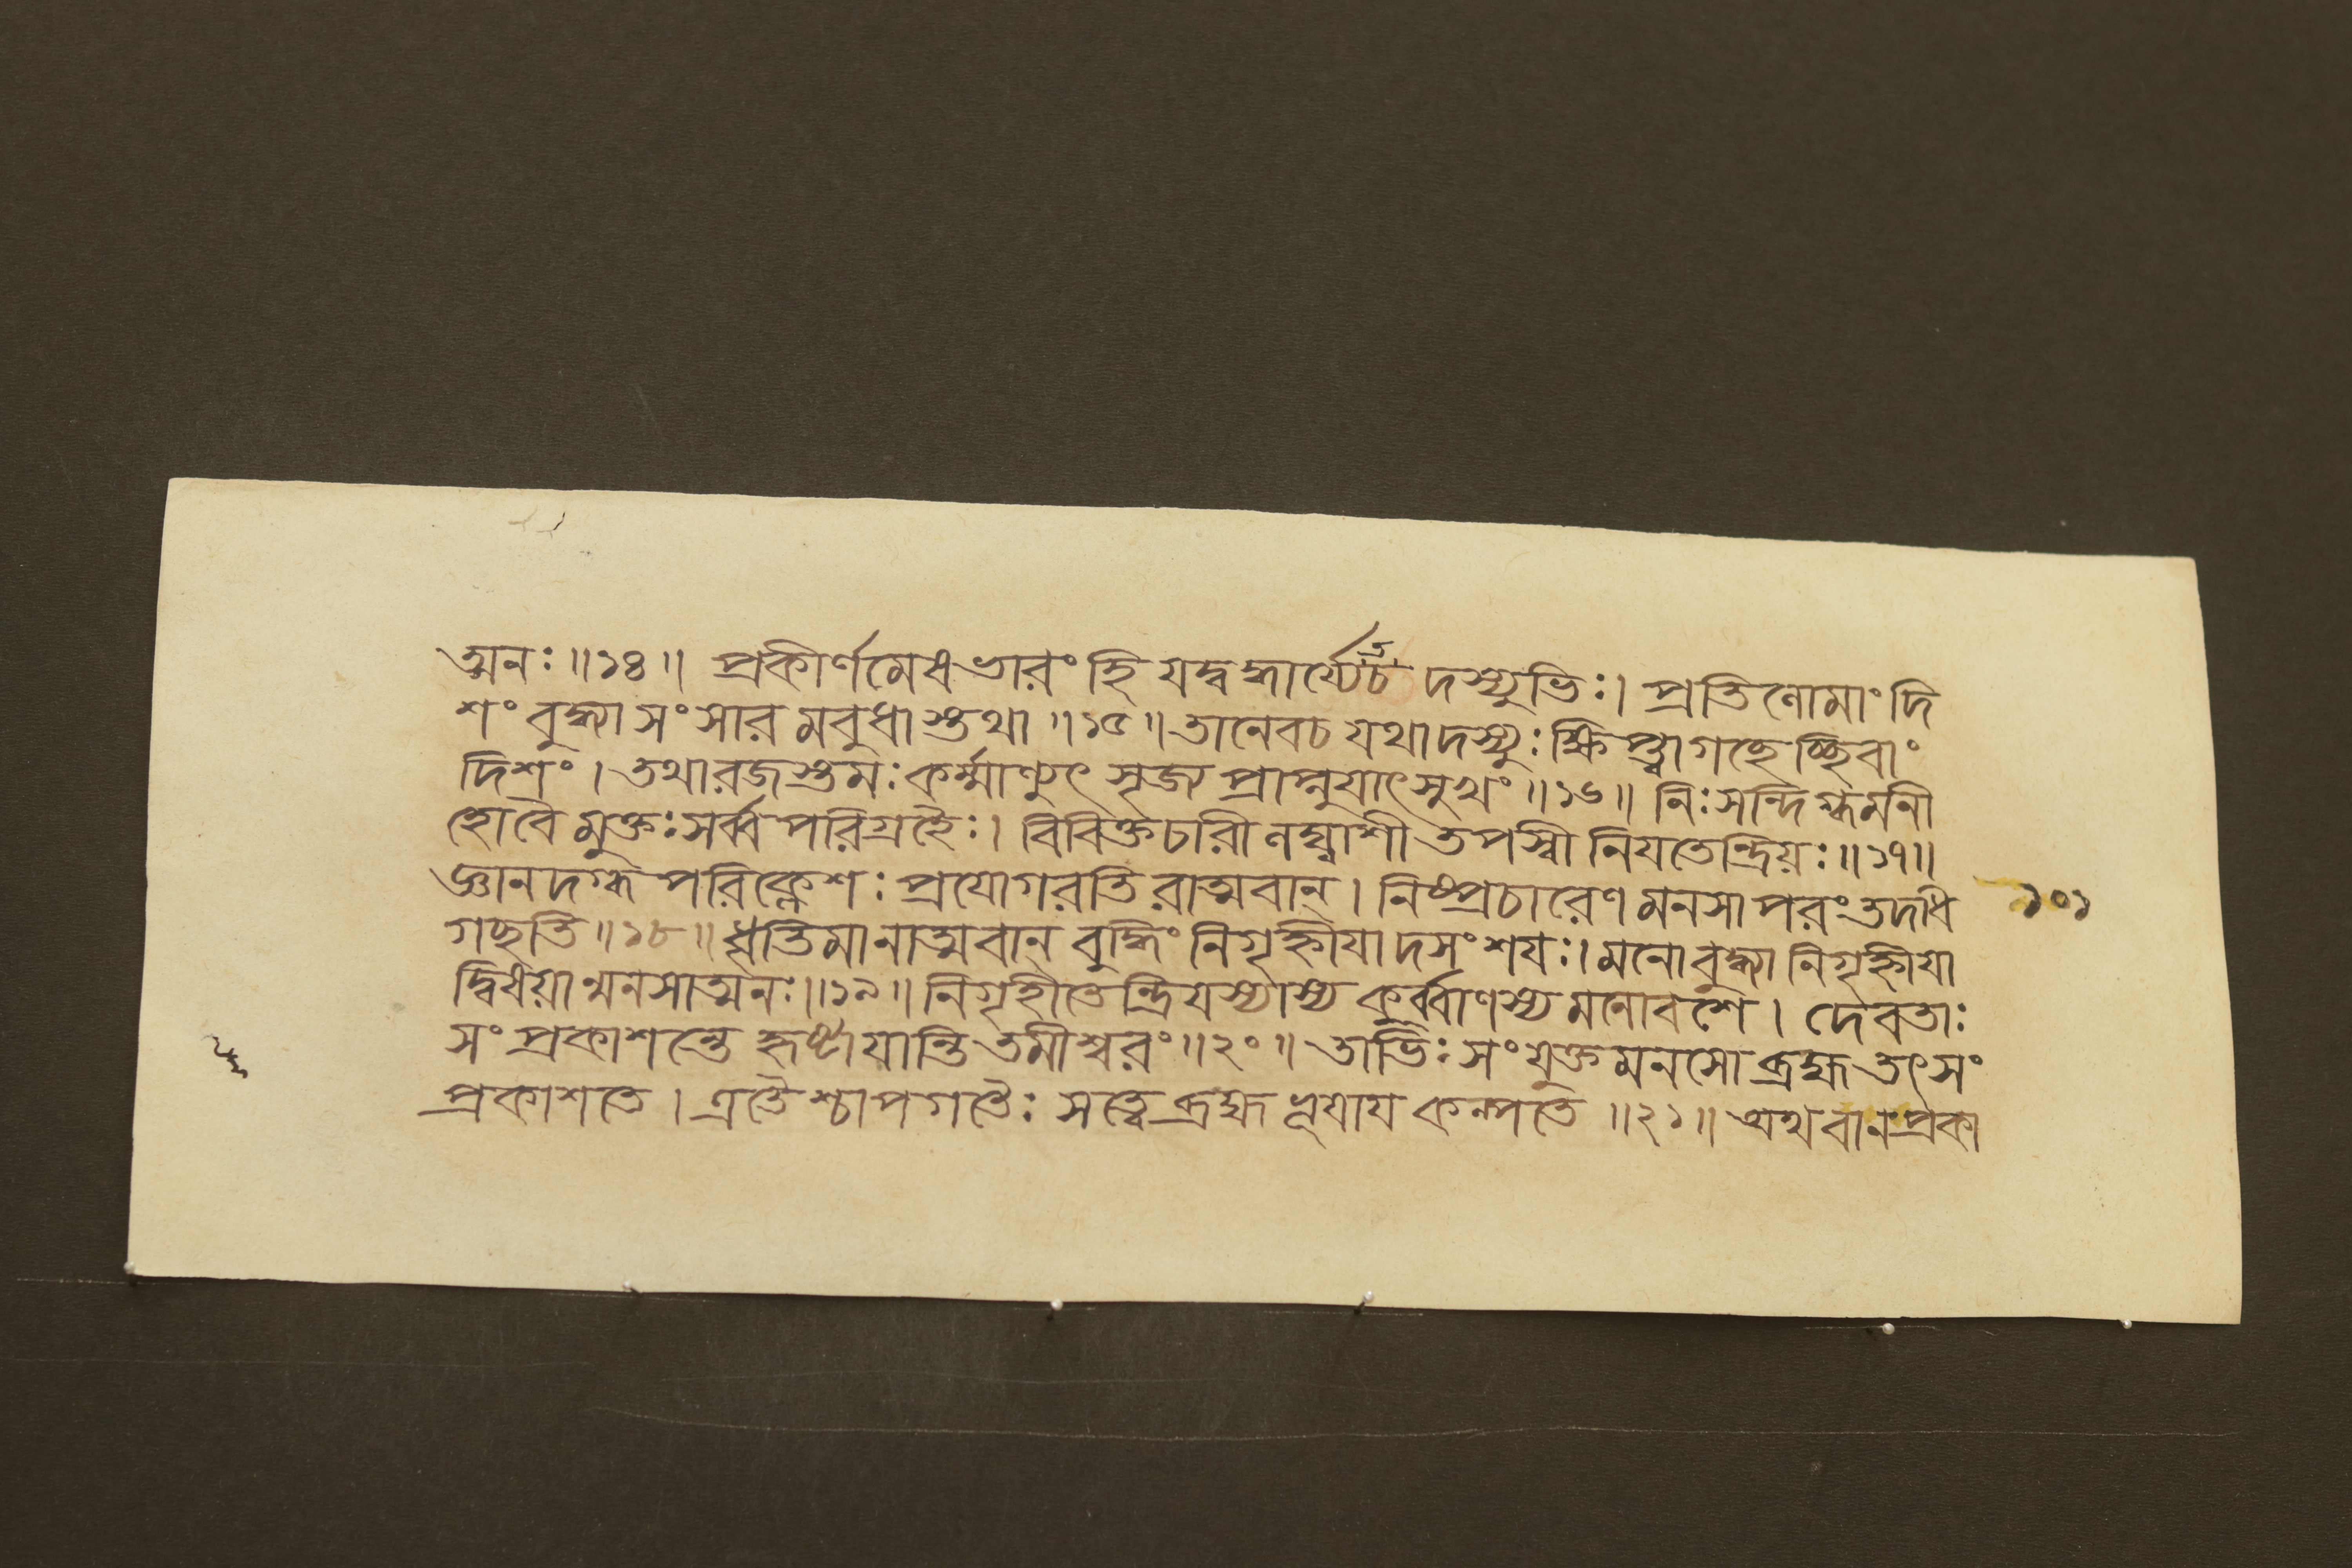 ত্মনঃ ॥১৪॥ প্রকীর্ণমেষভারং হি যদ্বদ্ধার্য্যেত দস্যুভিঃ। প্রতিলোমাং দি
শং বুদ্ধ্যা সংসারমবুধাস্তথা ॥১৫॥ তানেবচ যথাদস্যুঃ ক্ষিপ্ত্বাগচ্ছেচ্ছিবাং
দিশং। তথারজস্তমঃকর্ম্মাণ্যুৎসৃজ্য প্রাপ্নুয়াৎসুখং ॥১৬॥ নিঃসন্দিগ্ধমনী
হোবৈ মুক্তঃ সর্ব্ব পরিগ্রহৈঃ। বিবিক্তচারী লঘ্বাশী তপস্বী নিযতেন্দ্রিয়ঃ ॥১৭॥
জ্ঞানদগ্ধ পরিক্লেশঃ প্রযোগরতি রাত্মবান্। নিষ্প্রচারেণ মনসা পরং তদধি
গচ্ছতি ॥১৮॥ ধৃতিমানাত্মবান্ বুদ্ধিং নিগৃহ্ণীযাদসংশযঃ। মনো বুদ্ধ্যা নিগৃহ্ণীযা
দ্বিষয়ান্মনসাত্মনঃ ॥১৯॥ নিগৃহীতেন্দ্রিযস্যাস্য কুর্ব্বাণস্য মনোবশে। দেবতাঃ
সংপ্রকাশন্তে হৃষ্টাযান্তি তমীশ্বরং ॥২০॥ তাভিঃ সংযুক্তমনসো ব্রহ্ম তৎসং
প্রকাশতে। এতৈশ্চাপগতৈঃ সত্ত্বে ব্রহ্মভূযায কল্পতে ॥২১॥ অথবানপ্রকা
১০১